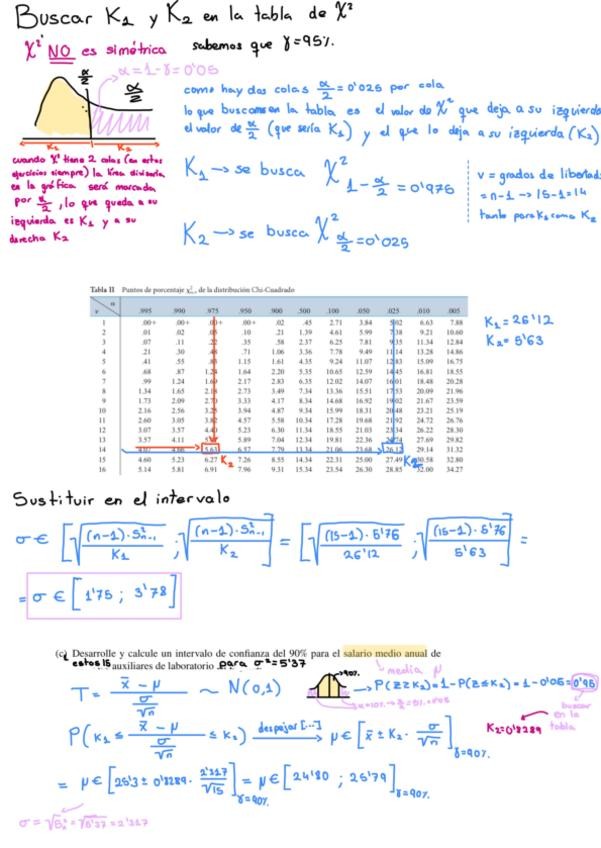 Buscar K₁ y K₂ en la tabla de X²
X² NO es simétrica
sabemos que γ=95%.
α=1-γ=0'05
α/2
α/2
K₁ K₂
como hay dos colas α/2=0'025 por cola
lo que buscamos en la tabla es el valor de X² que deja a su izquierda
el valor de α/2 (que sería K₁) y el que lo deja a su izquierda (K₂)
cuando X² tiene 2 colas (en estos
ejercicios siempre) la línea divisoria
es la gráfica será marcada
por α/2, lo que queda a su
izquierda es K₁ y a su
derecha K₂
K₁ → se busca X² 1-α/2=0'975
K₂ → se busca X² α/2=0'025
v = grados de libertad
= n-1 → 15-1=14
tanto para K₁ como K₂
Tabla II Puntos de porcentaje χ² de la distribución Chi-Cuadrado
α
v .995 .990 .975 .950 .900 .500 .100 .050 .025 .010 .005
1 .00+ .00+ .00+ .00+ .02 .45 2.71 3.84 5.02 6.63 7.88
2 .01 .02 .05 .10 .21 1.39 4.61 5.99 7.38 9.21 10.60
3 .07 .11 .22 .35 .58 2.37 6.25 7.81 9.35 11.34 12.84
4 .21 .30 .48 .71 1.06 3.36 7.78 9.49 11.14 13.28 14.86
5 .41 .55 .83 1.15 1.61 4.35 9.24 11.07 12.83 15.09 16.75
6 .68 .87 1.24 1.64 2.20 5.35 10.65 12.59 14.45 16.81 18.55
7 .99 1.24 1.69 2.17 2.83 6.35 12.02 14.07 16.01 18.48 20.28
8 1.34 1.65 2.18 2.73 3.49 7.34 13.36 15.51 17.53 20.09 21.96
9 1.73 2.09 2.70 3.33 4.17 8.34 14.68 16.92 19.02 21.67 23.59
10 2.16 2.56 3.25 3.94 4.87 9.34 15.99 18.31 20.48 23.21 25.19
11 2.60 3.05 3.82 4.57 5.58 10.34 17.28 19.68 21.92 24.72 26.76
12 3.07 3.57 4.40 5.23 6.30 11.34 18.55 21.03 23.34 26.22 28.30
13 3.57 4.11 5.89 7.04 12.34 19.81 22.36 24.74 27.69 29.82
14 5.63 6.57 7.79 13.34 21.06 23.68 26.12 29.14 31.32
15 4.60 5.23 6.27 K₂ 7.26 8.55 14.34 22.31 25.00 27.49 K₂ 30.58 32.80
16 5.14 5.81 6.91 7.96 9.31 15.34 23.54 26.30 28.85 32.00 34.27
K₁=26'12
K₂=5'63
Sustituir en el intervalo
σ ∈ [√((n-1)·S²n-1 / K₁) ; √((n-1)·S²n-1 / K₂)] = [√((15-1)·5'76 / 26'12) ; √((15-1)·5'76 / 5'63)] =
= σ ∈ [1'75 ; 3'78]
(c) Desarrolle y calcule un intervalo de confianza del 90% para el salario medio anual de
estos 15 auxiliares de laboratorio para σ²=5'37
media μ
T = (x̄ - μ) / (σ/√n) ~ N(0,1)
90%
→ P(Z≥K₂)=1-P(Z≤K₂)=1-0'05=0'95
buscar
en la
tabla
K₂=0'8289
P(K₁ ≤ (x̄ - μ) / (σ/√n) ≤ K₂) despejar [...] → μ ∈ [x̄ ± K₂· σ/√n] γ=90%.
= μ ∈ [25'3 ± 0'8289· 2'317/√15] γ=90%. = μ ∈ [24'80 ; 25'79] γ=90%.